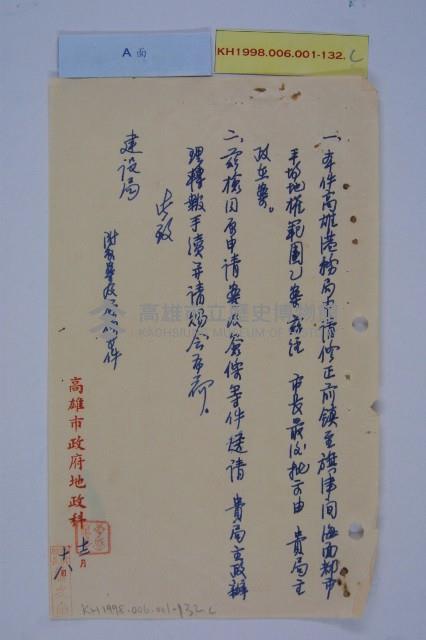 A面
KH1998.006.001-132.C
一、本件高雄港務局申請修正前鎮至旗津間海面都市
平均地權範圍乙案經 市長最後批示由 貴局主
政在案。
二、茲檢同原申請案及簽條等件送請 貴局主政辦
理轉報手續并請賜會為荷。
此致
建设局
附原
高雄市政府地政科
十二月
十八日
高雄市立歷史博物館
KAOHSIUNG MUSEUM OF HISTORY
KH1998.006.001-132C